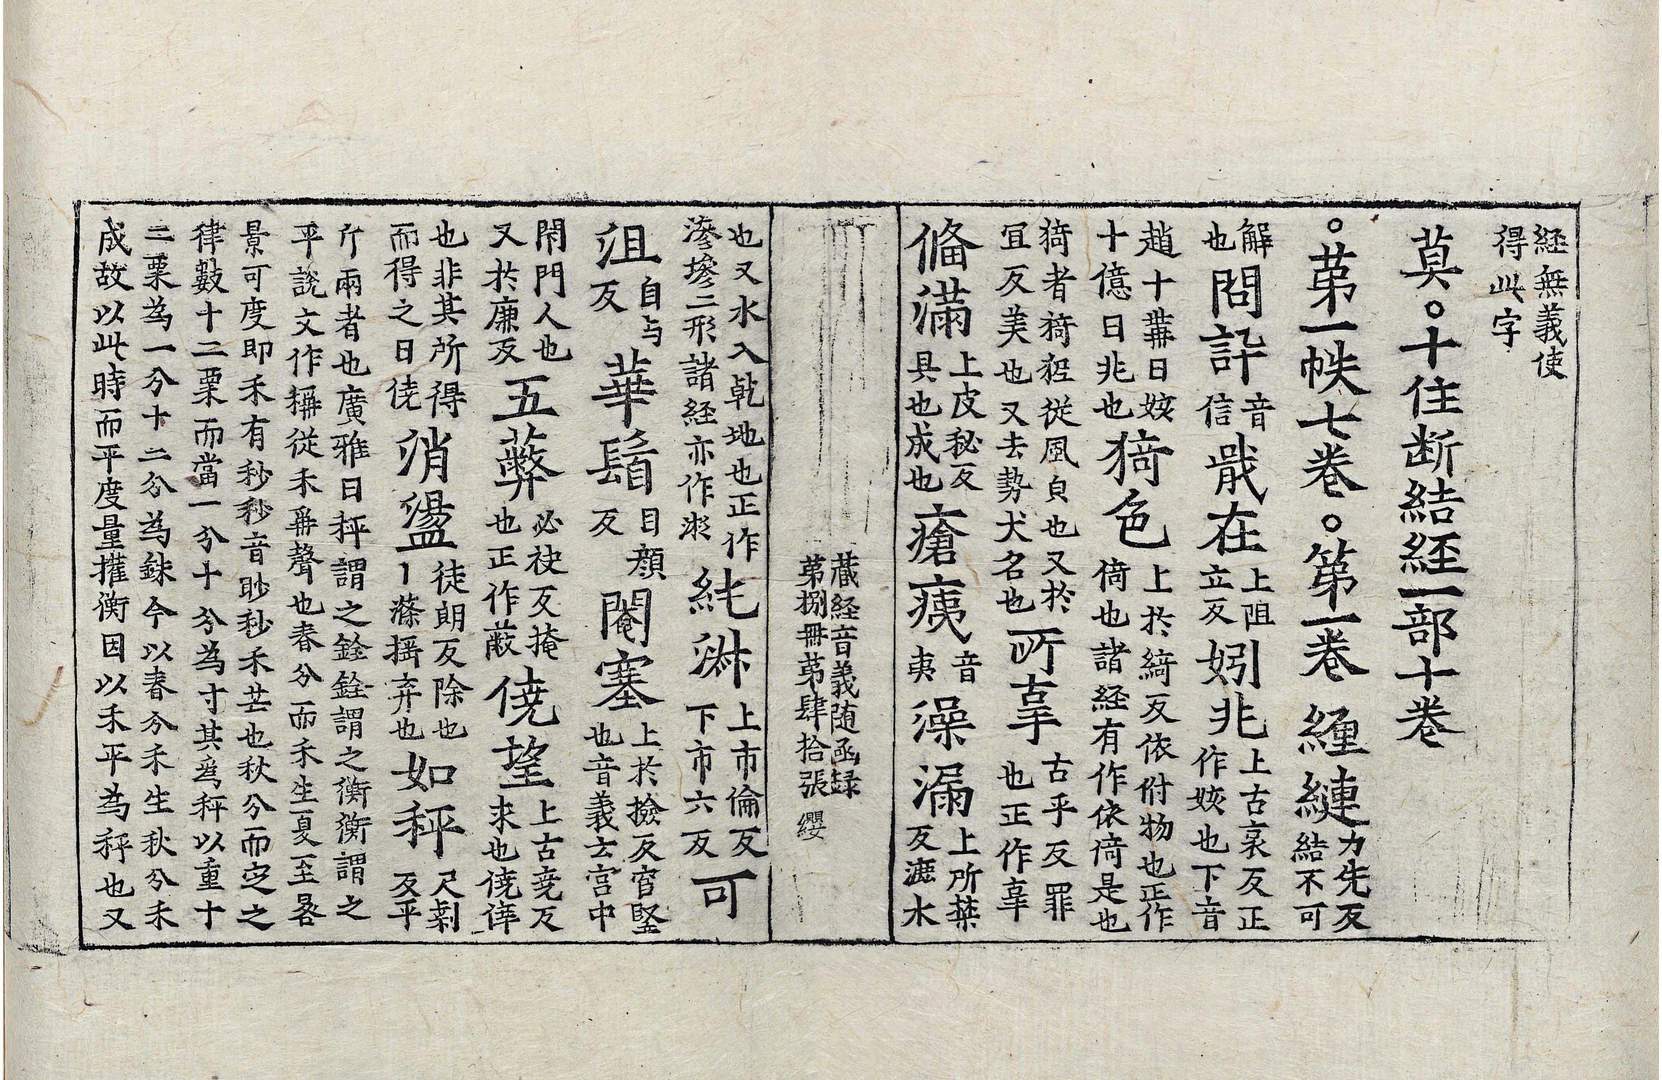 経無義使
得此字
莫。十住断結経一部十卷
。苐一帙七卷。第一卷 緾縺力先反結不可
解也 問訲音信 戢在上阻立反 㛃兆上古哀反正作姟也下音
趙十冓曰姟十億曰兆也 猗色上於綺反依附物也正作倚也諸経有作依倚是也
猗者猗狔從風皃也又於宜反美也又去㔟犬名也 所辜古乎反罪也正作辜
俻滿上皮秘反具也成也 瘡痍音夷 澡漏上所禁反漉水
蔵経音義随函録
苐捌冊苐肆拾張 纓
也又水入乾地也正作滲㙻二形諸経亦作㴽 純淋上市倫反下市六反 可
沮自与反 華鬘目顔反 閹塞上於撿反宫竪也音義云宫中
閇門人也又於廉反 五蔽必袂反掩也正作蔽 僥望上古尭反求也僥倖
也非其所得而得之曰僥 消盪徒朗反除也丨滌摇弃也 如秤尺剩反平
斤兩者也廣雅曰秤謂之銓銓謂之衡衡謂之
平説文作稱從禾爯聲也春分而禾生夏至晷
景可度即禾有秒秒音眇秒禾芒也秋分而㝎之
律數十二粟而當一分十分為寸其為秤以重十
二粟為一分十二分為銖今以春分禾生秋分禾
成故以此時而平度量㩲衡因以禾平為秤也又